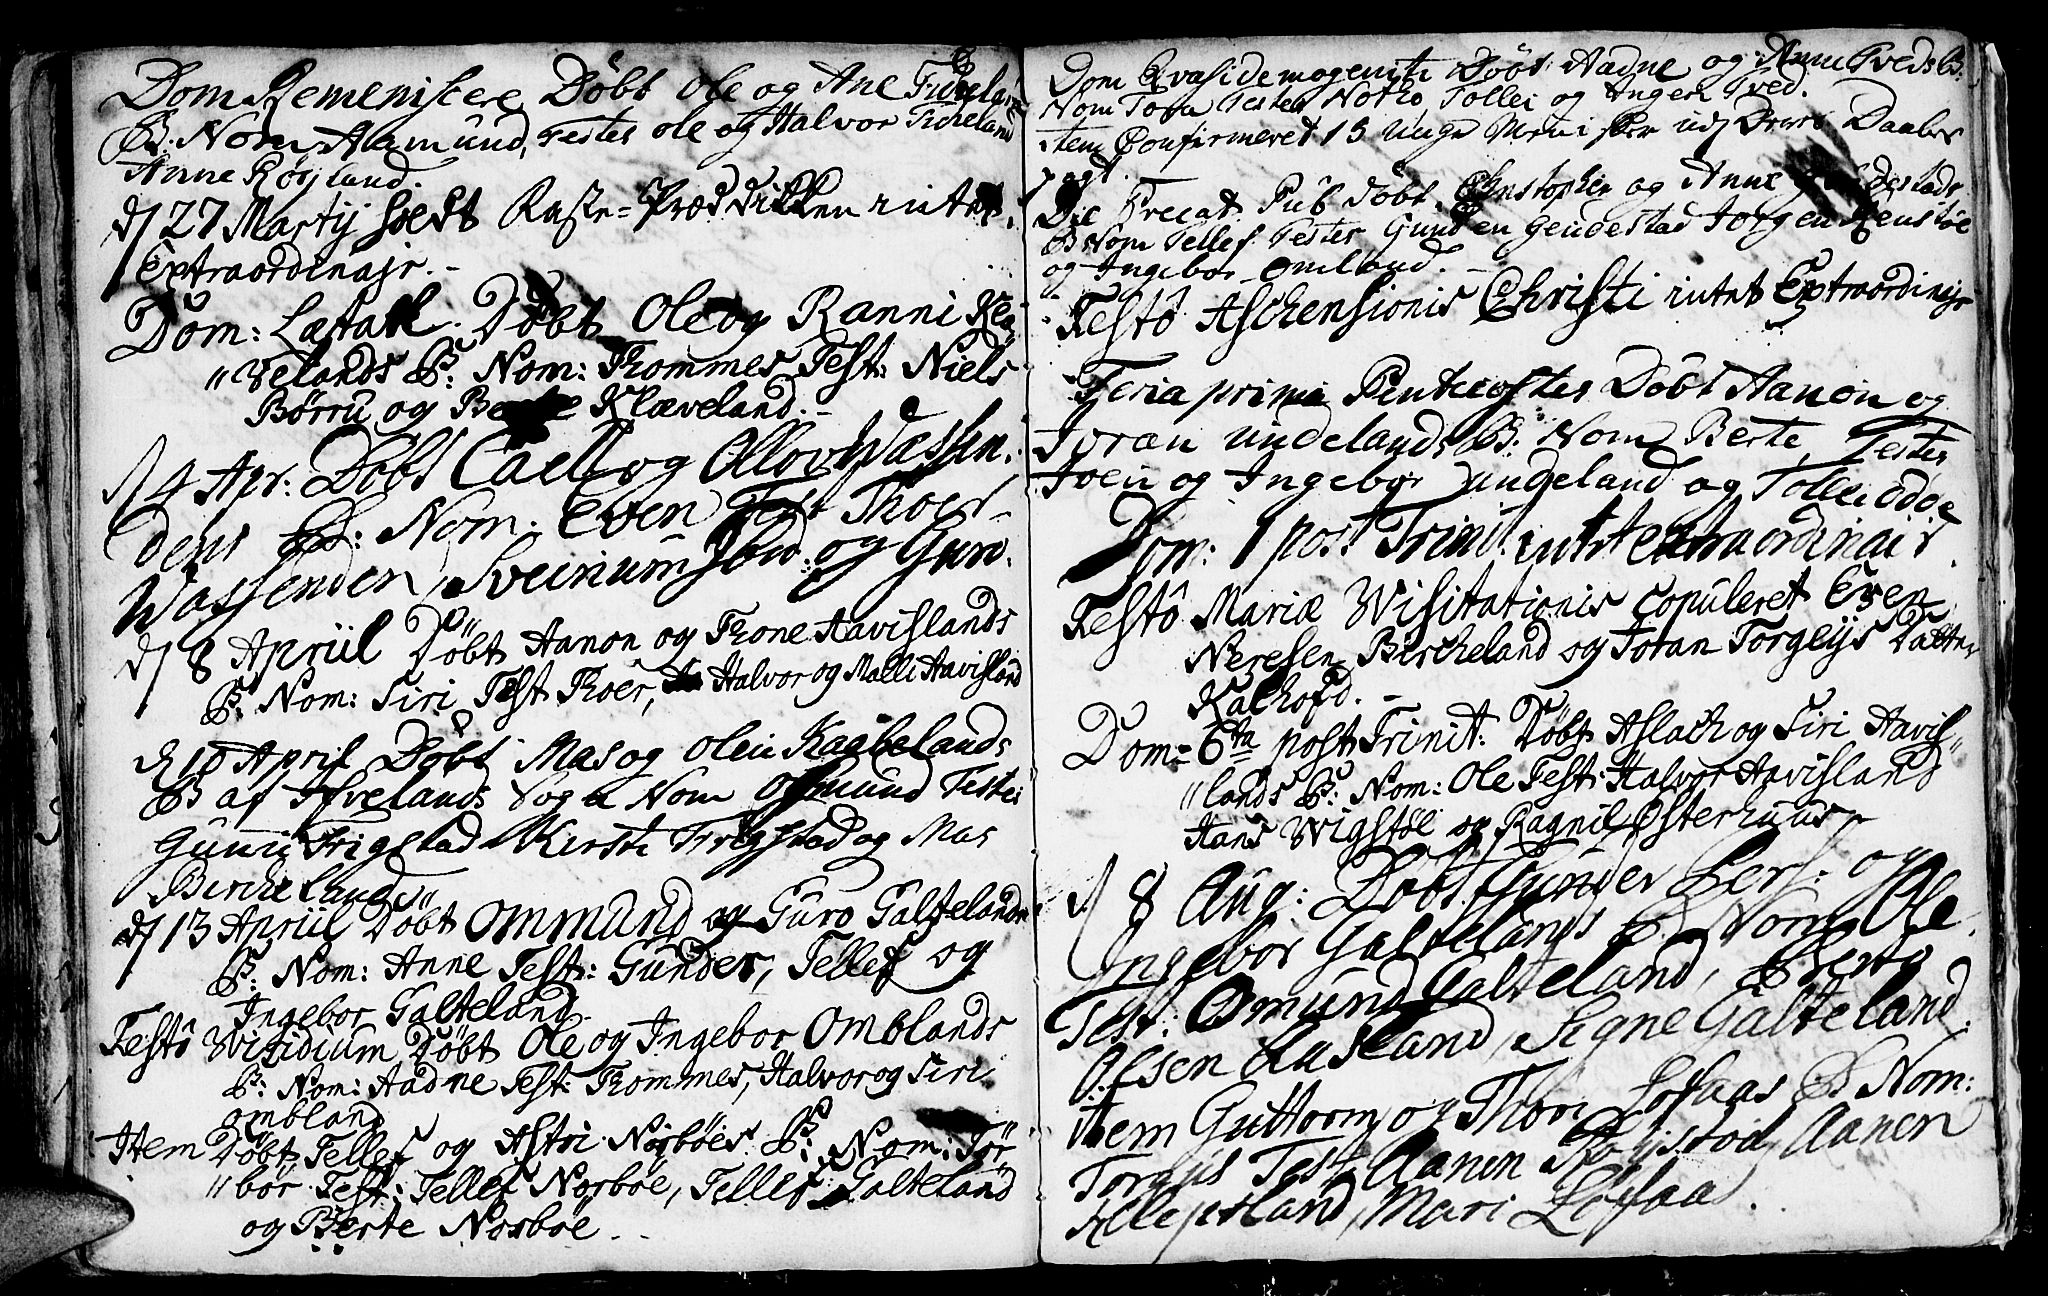 Dom Remeniscere Döbt Ole og Ane
B. Nom Aamund, Testes Ole og Halvor Ticheland
Anne Røjsland.
d 27 Martij holdt Faste-Prædicken intet
Extraordinajr.
Dom: Lætare. Döbt Ole og Ranni Klæ
"velands B: Nom: Thommes Test: Niels
Börru og Berte Klæveland.
d 4 Apr: Döbt og Ollov Wassen
dens B: Nom. Even Test Thoer
Wassenden, og Guro
d 8 Apriil Döbt Aanon og Thone Aavislands
B: Nom: Siri Test Thoer, Halvor og Malli Aavisland
d 10 April Döbt Mas og Olen Kaabelands
B af Ifvelands Sogn Nom Osmund Testes
Gunni Trigstad Kirsti Trygstad og Mas
Bircheland
d 13 Apriil Döbt Ommund og Guro Galtelands
B: Nom: Anne Test: Gunder, Tellef og
Ingebor Galteland
Festô Viridium Döbt Ole og Ingebor Omblands
B: Nom: Aadne Test: Thommes, Halvor og Siri
ombland
Item Döbt Tellef og Astri Norböes B: Nom: Tor
"bör Test: Tellef Norböe, Tellef Galteland
og Berte Norböe.
Dom Qvasidemogeniti Döbt Aadne og Anne Tveds B:
Nom Tora Testes Notto, Tollei og Inger Tved.
item Confirmeret 15 unge Menisker udj Daabes
pagt.
Die Precat. Pub döbt Christopher og Anne
B Nom Tellef Testes Gunden Gendestad Jörgen Renstöe
og Ingebor Omland.
Festô Aschensionis Christi intet Extraordinajr
Feria prima Pentecostes Döbt Aanon og
Joran Undelands B: Nom Berte, Testes
Joen og Ingebor Undeland og Tollei Ödöe
Dom: 1 post Trinit. intet extraordinair.
Festô Mariæ Visitationis Copuleret Even
Neresen Bircheland og Joran Torgeijs Datter
Kalhofd.
Dom: 6ta post Trinit: Döbt Aslach og Siri Aavis
"lands B: Nom: Ole Test: Halvor Aavisland
Hans Wigstöl og Ragnil Österhuus
d 8 Aug: Döbt Gunder Lers: og
Ingebor Galtelands B. Nom Ole
Test: Osmund Galteland,
Olsen Ausland, Signe Galteland.
item Guttorm og Thore Lofaas B Nom:
Torgius Test Aanen Röijstad, Aanen
Mari Lofaa.